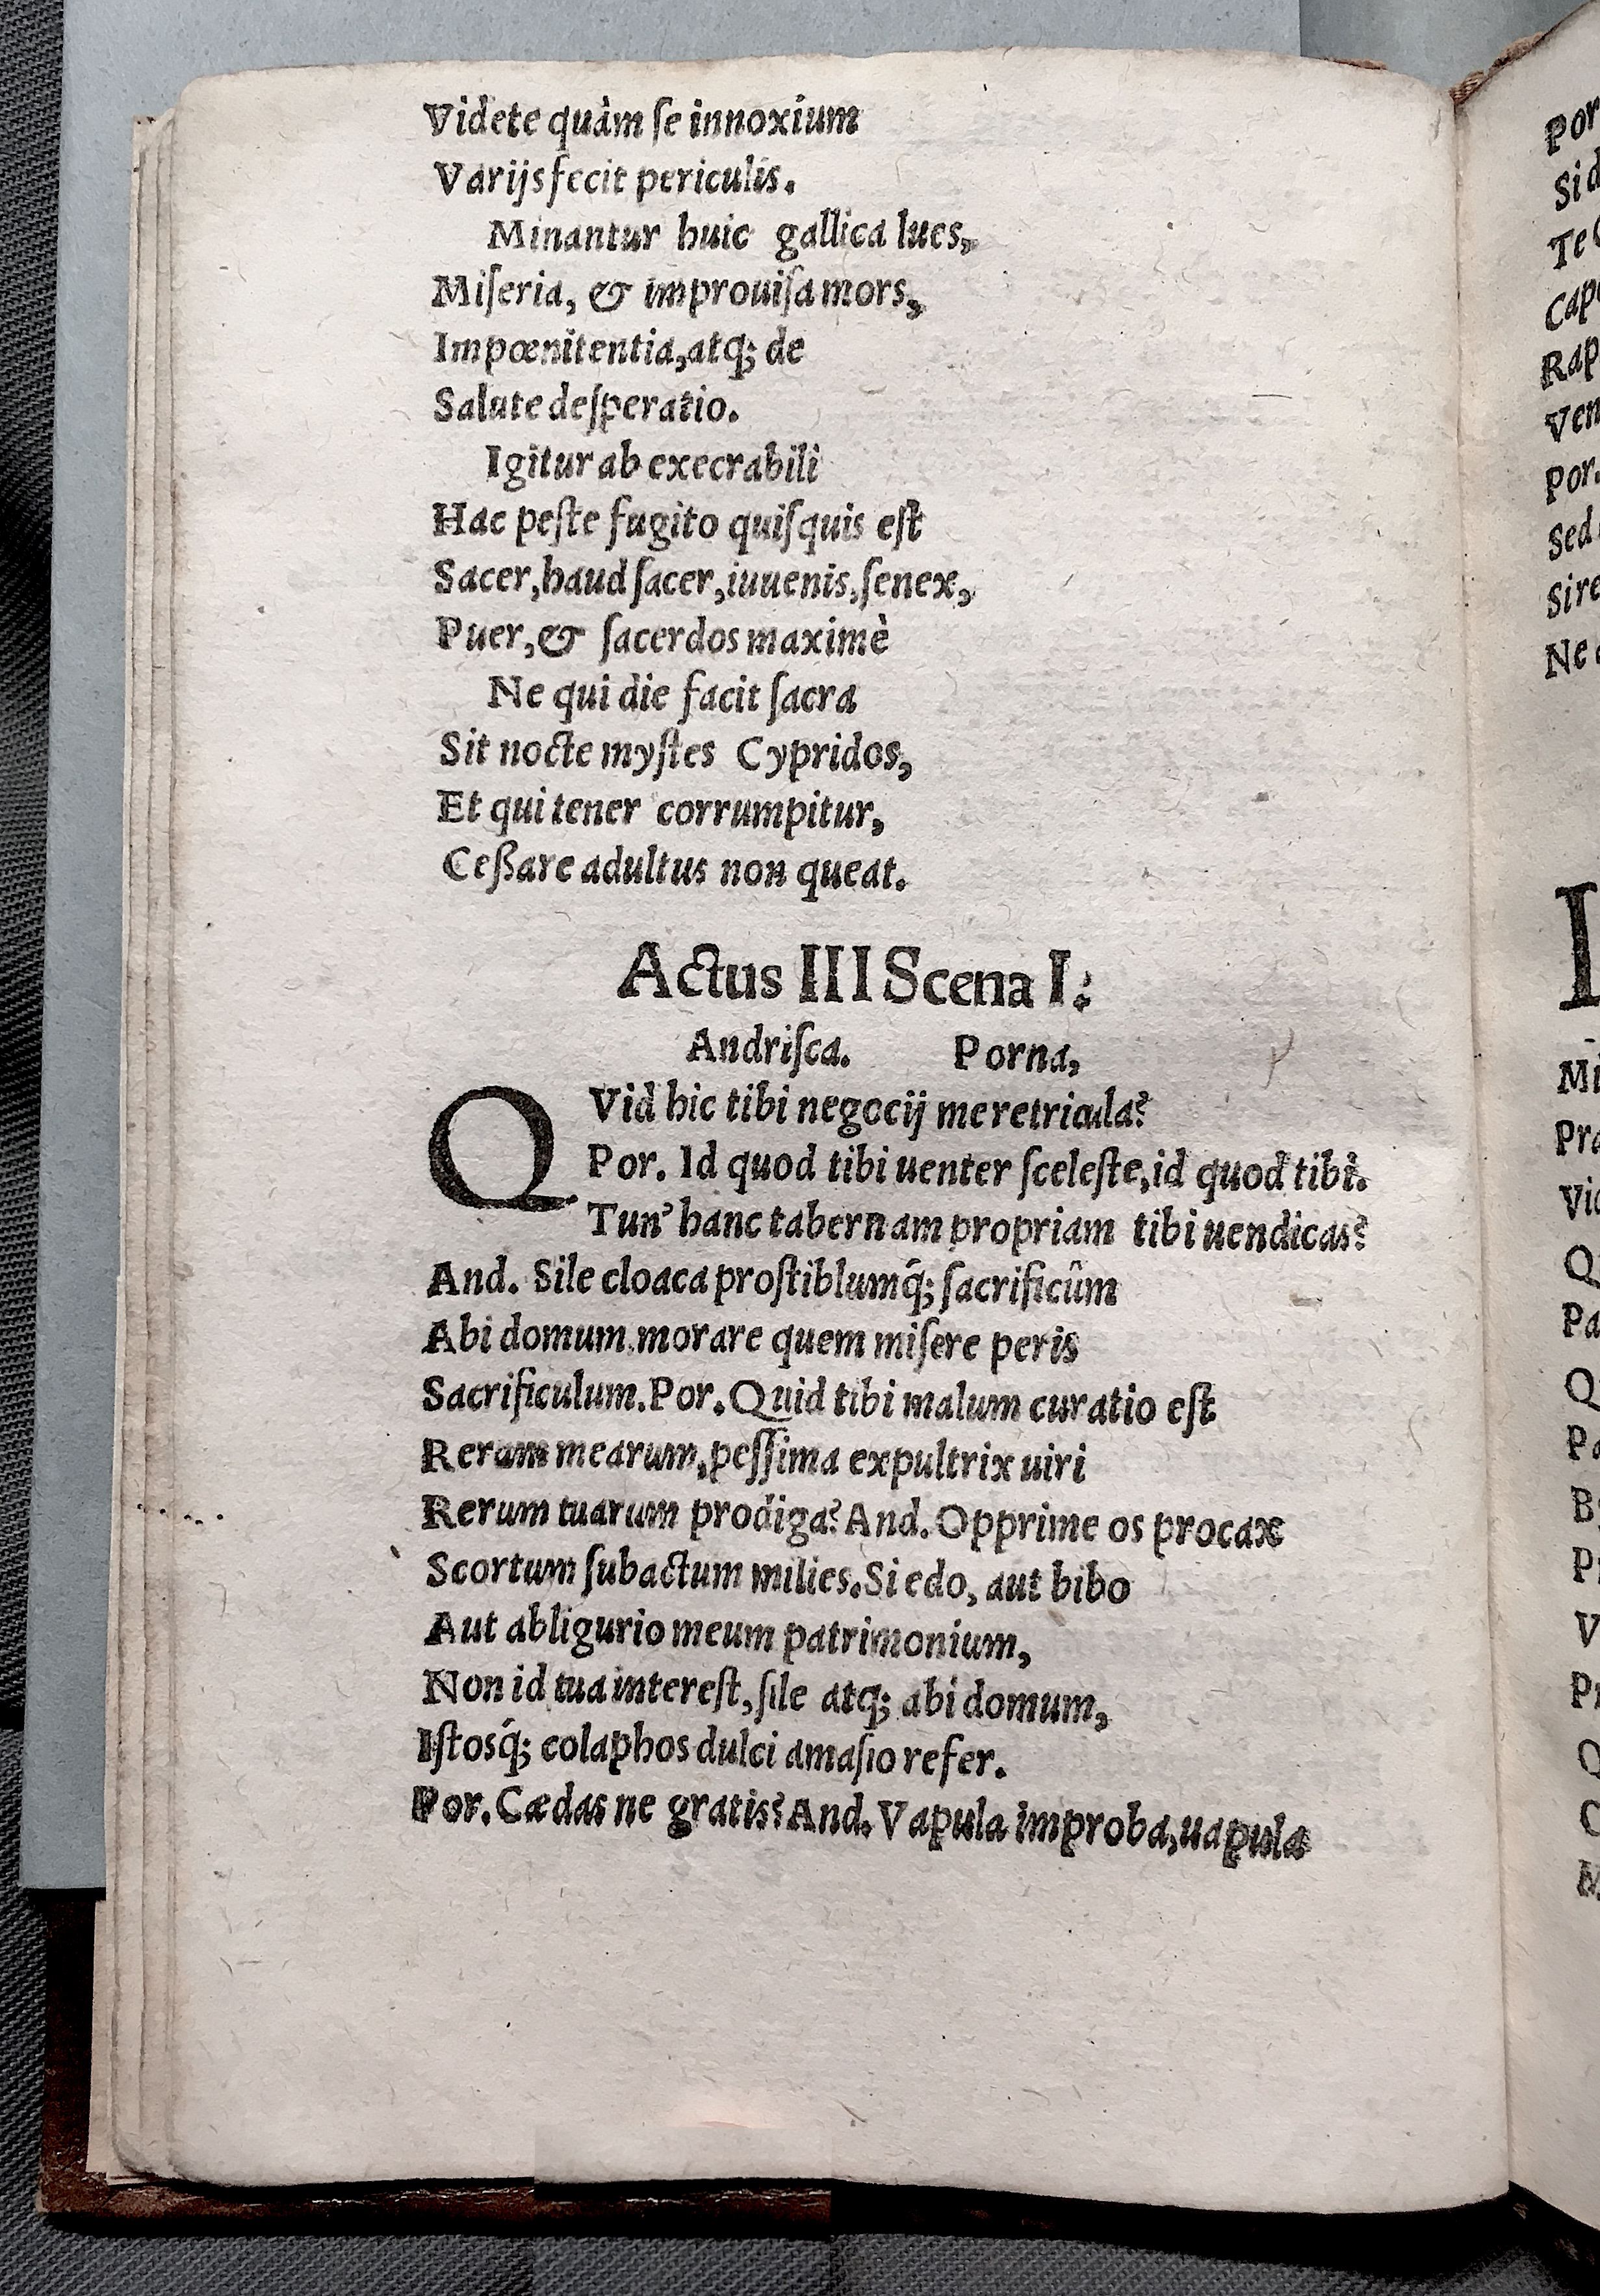 Videte quàm ſe innoxium
Varijs fecit periculis.
Minantur huic gallica lues,
Miſeria, & improuiſa mors,
Impœnitentia, atq; de
Salute deſperatio.
Igitur ab execrabili
Hac peſte fugito quiſquis eſt
Sacer, haud ſacer, iuuenis, ſenex,
Puer, & ſacerdos maximè
Ne qui die facit ſacra
Sit nocte myſtes Cypridos,
Et qui tener corrumpitur,
Ceßare adultus non queat.
Actus III Scena I.
Andriſca. Porna,
QVid hic tibi negocij meretricula?
Por. Id quod tibi uenter ſceleſte, id quod tibi.
Tun' hanc tabernam propriam tibi uendicas?
And. Sile cloaca proſtiblumq́; ſacrificûm
Abi domum, morare quem miſere peris
Sacrificulum. Por. Quid tibi malum curatio eſt
Rerum mearum, peſſima expultrix uiri
Rerum tuarum prodiga? And. Opprime os procax
Scortum ſubactum milies. Si edo, aut bibo
Aut abligurio meum patrimonium,
Non id tua intereſt, ſile atq; abi domum,
Iſtosq́; colaphos dulci amaſio refer.
Por. Cædas ne gratis? And. Vapula improba, uapula
Por
Si d
Te
Cap
Rap
Ven
Por.
Sed
Sire
Ne
I
Mi
Pra
Vi
Q
Pa
Q
Pa
B
P
V
Pr
Q
C